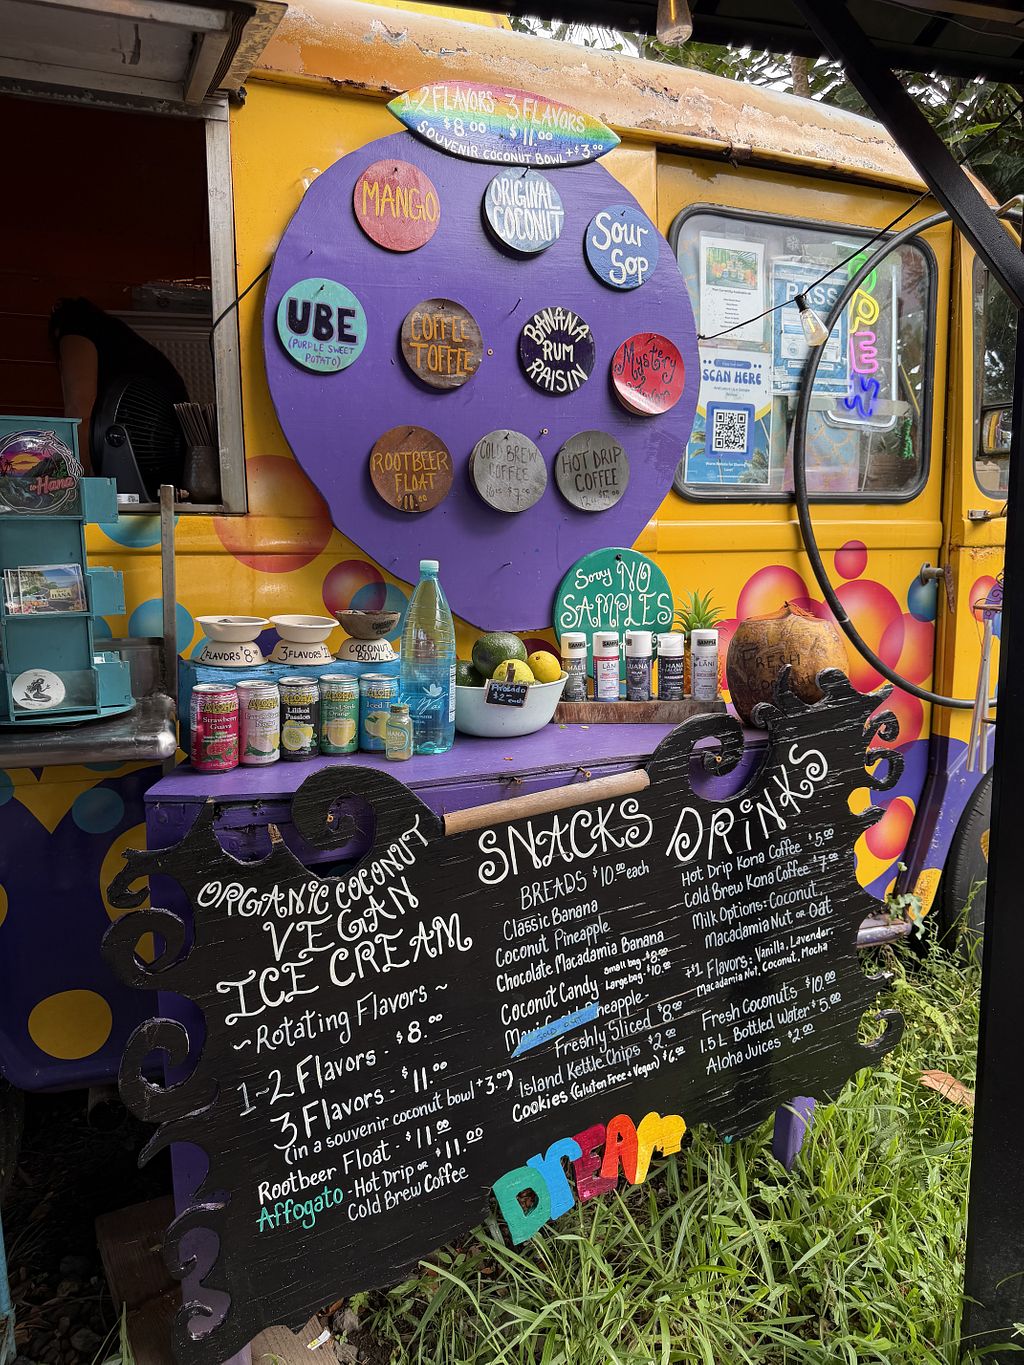 1-2 FLAVORS 3 FLAVORS
$8.00 $11.00
SOUVENIR COCONUT BOWL +$3.00
MANGO
ORIGINAL
COCONUT
Sour
Sop
UBE
(PURPLE SWEET
POTATO)
COFFEE
TOFFEE
BANANA
RUM
RAISIN
Mystery
ROOTBEER
FLOAT
11.00
COLD BREW
COFFEE
HOT DRIP
COFFEE
SCAN HERE
PASS
OPEN
to Hana
Sorry NO
SAMPLES
2 FLAVORS $8
3 FLAVORS
COCONUT
BOWL
ALOHA
Strawberry
Guava
ALOHA
Lilikoi
Passion
ALOHA
Orange
ALOHA
Iced
Avocado
$2.00
each
SAMPLE
SAMPLE
SAMPLE
FRESH
ORGANIC COCONUT
VEGAN
ICE CREAM
~Rotating Flavors~
1-2 Flavors - $8.00
3 Flavors - $11.00
(in a souvenir coconut bowl +3.00)
Rootbeer Float - $11.00
Affogato - Hot Drip or $11.00
Cold Brew Coffee
SNACKS
BREADS $10.00 each
Classic Banana
Coconut Pineapple
Chocolate Macadamia Banana
Coconut Candy Small bag - $8.00
Large bag - $10.00
Maui Gold Pineapple -
Freshly Sliced $8.00
SOLD OUT
Island Kettle Chips $2.00
Cookies (Gluten Free + Vegan) $6.00
DRINKS
Hot Drip Kona Coffee $5.00
Cold Brew Kona Coffee $7.00
Milk Options: Coconut,
Macadamia Nut or Oat
+$1 Flavors: Vanilla, Lavender,
Macadamia Nut, Coconut, Mocha
Fresh Coconuts $10.00
1.5 L Bottled Water $5.00
Aloha Juices $2.00
DREAM